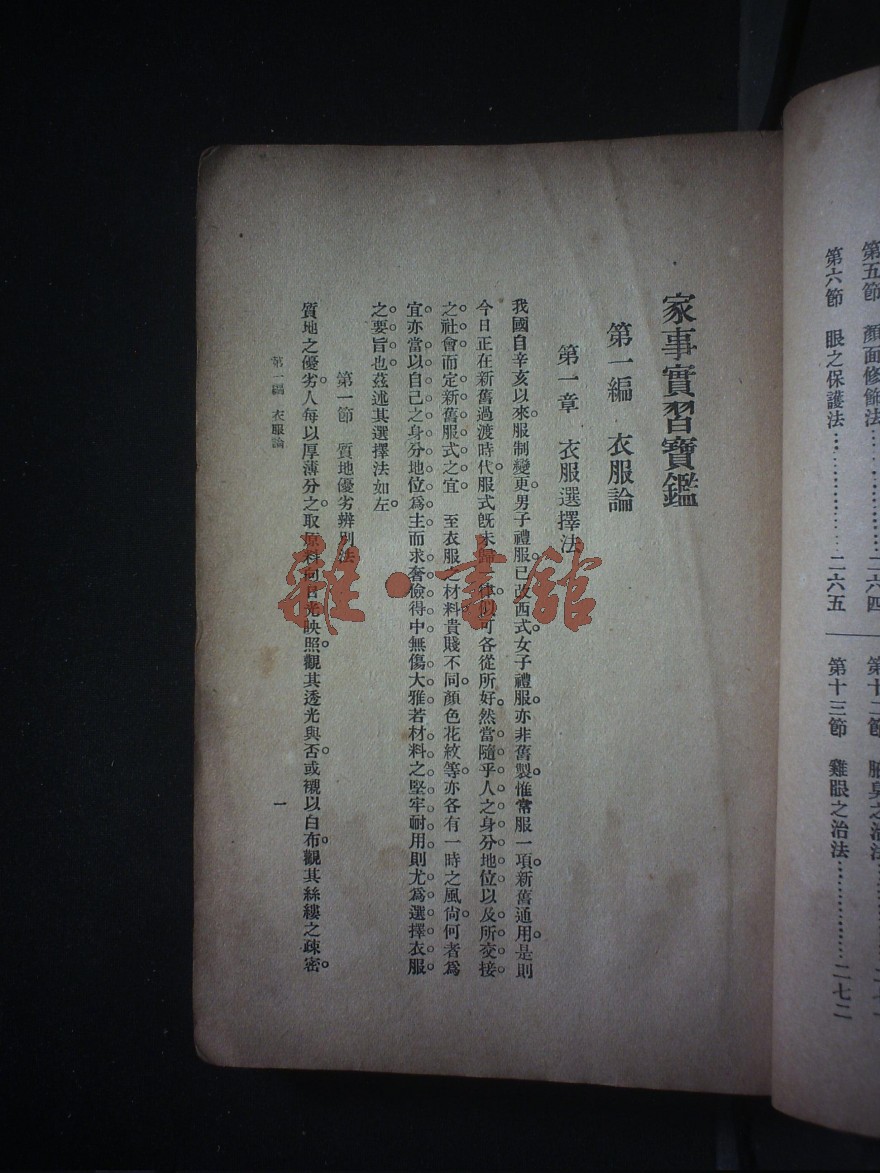 第五節　顏面修飾法…………二六四
第六節　眼之保護法…………二六五
第十二節
第十三節　雞眼之治法…………二七二
家事實習寶鑑
第一編　衣服論
第一章　衣服選擇法
我國自辛亥以來。服制變更。男子禮服。已改西式。女子禮服。亦非舊製。惟常服一項。新舊通用。是則
今日正在新舊過渡時代。服式既未歸一律。似可各從所好。然當隨乎人之身分地位以及所交接
之社會而定新舊服式之宜　至衣服之材料貴賤不同。顏色花紋等。亦各有一時之風尚。何者爲
宜。亦當以自己之身分地位爲主而求奢儉得中無傷大雅若材料之堅牢耐用則尤爲選擇衣服
之要旨也。茲述其選擇法如左。
第一節　質地優劣辨別法
質地之優劣。人每以厚薄分之。取原料向日光映照。觀其透光與否。或襯以白布。觀其絲縷之疎密。
第一編　衣服論
一
雜·書館